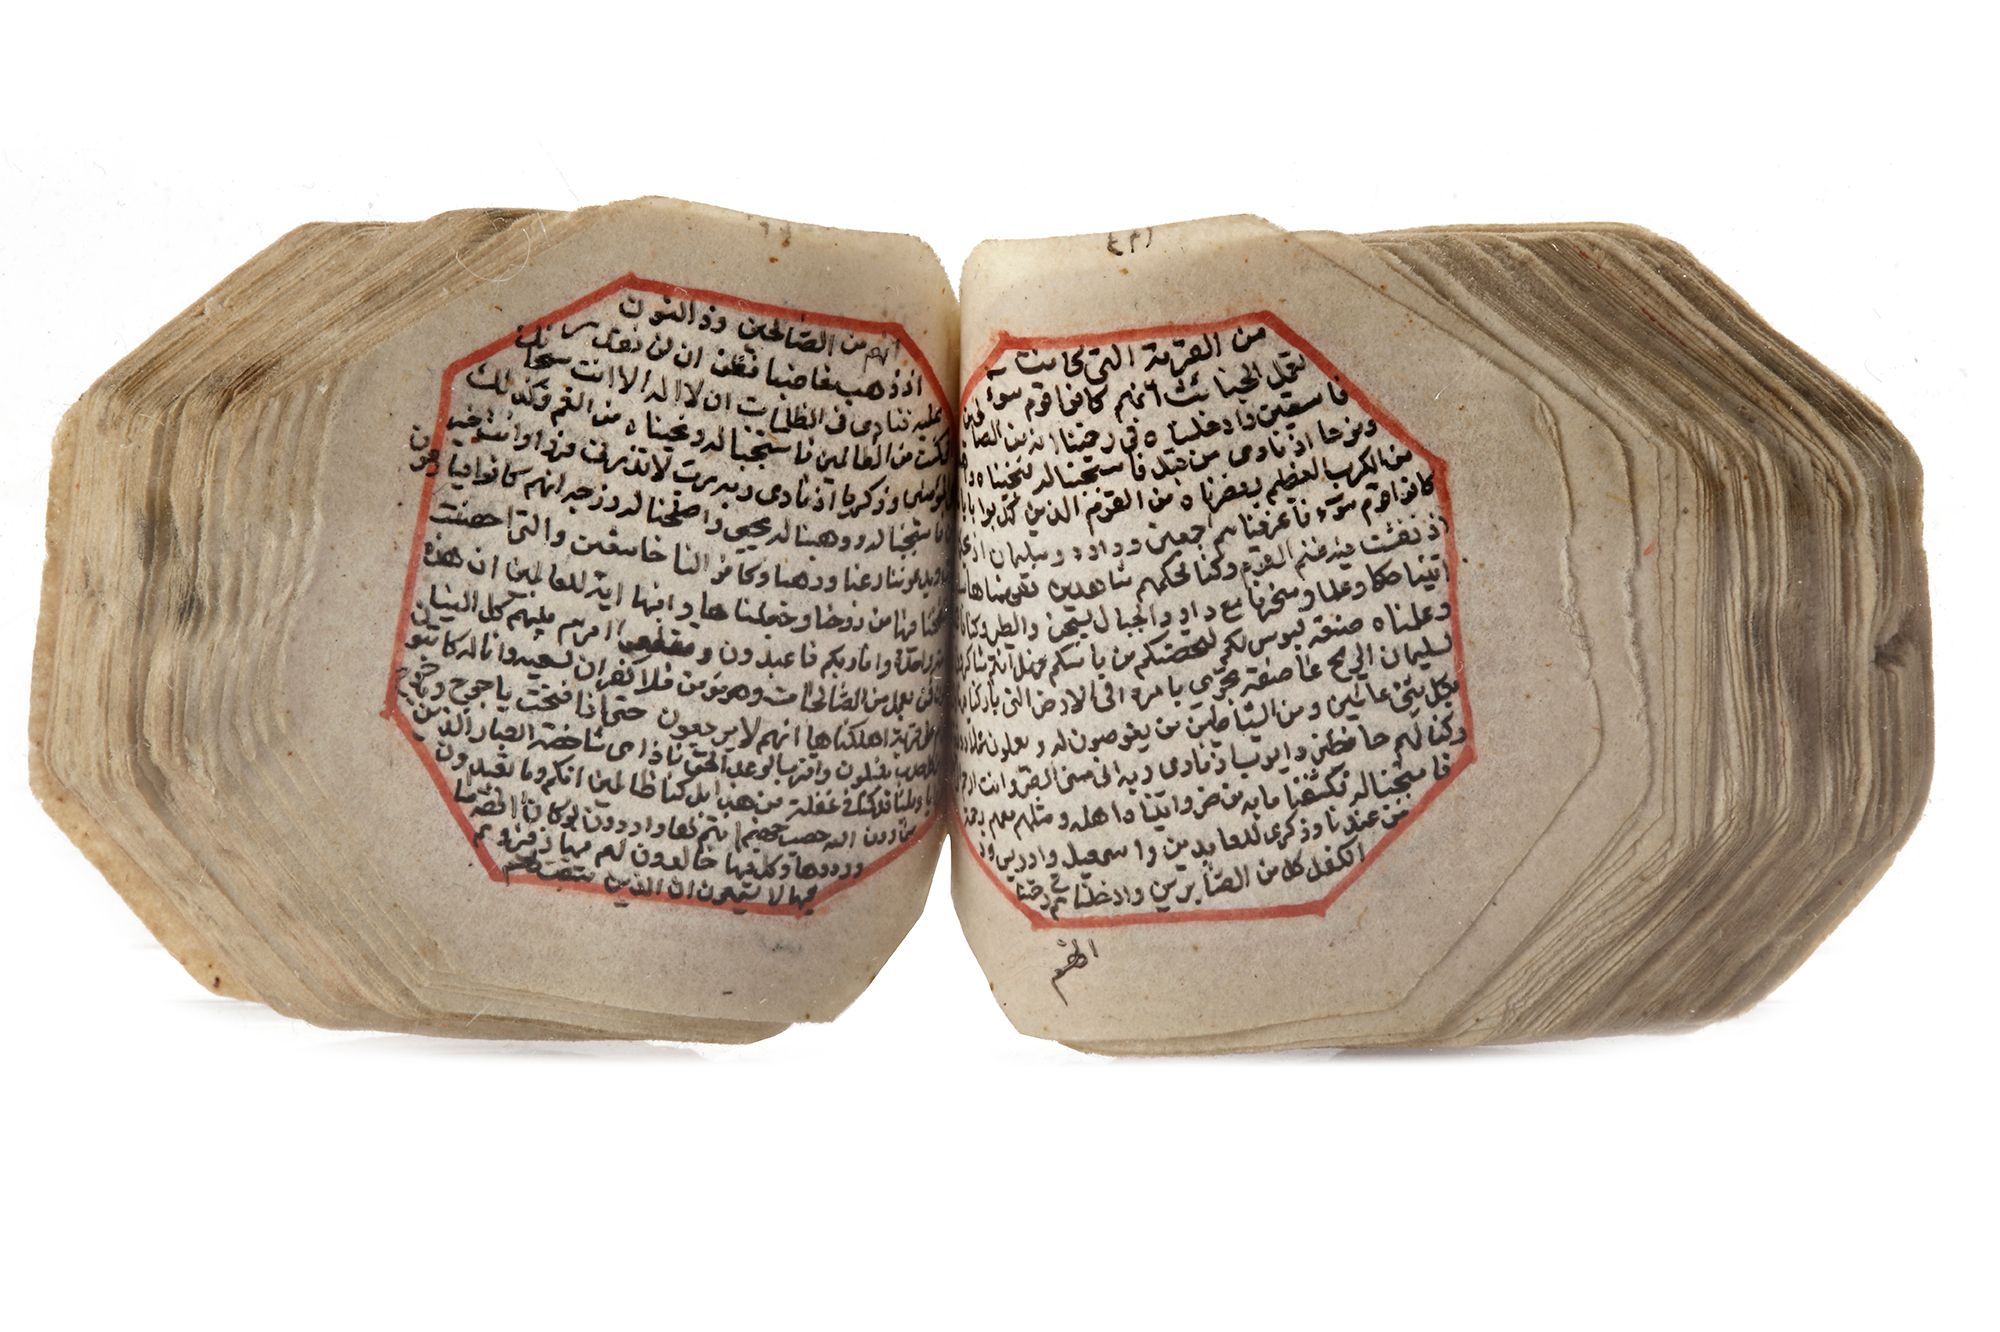 من القرية التي كانت
تعمل الخبائث انهم كانوا قوم سوء
فاسقين وادخلناه في رحمتنا انه من الصالحين
ونوحا اذ نادى من قبل فاستجبنا له فنجيناه
من الكرب العظيم ونصرناه من القوم الذين كذبوا
كانوا قوم سوء فاغرقناهم اجمعين وداود وسليمان
اذ نفشت فيه غنم القوم وكنا لحكمهم شاهدين ففهمناها
اتينا حكما وعلما وسخرنا مع داود الجبال يسبحن والطير وكنا
وعلمناه صنعة لبوس لكم لتحصنكم من باسكم فهل انتم
لسليمان الريح عاصفة تجري بامره الى الارض التي باركنا
بكل شئ عالمين ومن الشياطين من يغوصون له ويعملون
وكنا لهم حافظين وايوب اذ نادى ربه انى مسنى الضر وانت
فاستجبنا له فكشفنا ما به من ضر واتينا واهله ومثلهم معهم رحمة
من عندنا وذكرى للعابدين واسمعيل وادريس وذ
الكفل كل من الصابرين وادخلنا في رحمتنا
انهم
انهم من الصالحين وذالنون
اذ ذهب مغاضبا فظن ان لن نقدر
عليه فنادى فى الظلمات ان لا اله الا انت سبحانك
كنت من الظالمين فاستجبنا له ونجيناه من الغم وكذلك
المومنين وزكريا اذ نادى ربه رب لا تذرني فردا وانت خير
فاستجبنا له ووهبنا له يحيى واصلحنا له زوجه انهم كانوا
ويدعوننا رغبا ورهبا وكانوا لنا خاشعين والتى احصنت
فنفخنا فيها من روحنا وجعلناها وابنها اية للعالمين ان هذه
واحدة وانا ربكم فاعبدون وتقطعوا امرهم بينهم كل الينا
فمن يعمل من الصالحات وهو مؤمن فلا كفران لسعيه وانا له
على قرية اهلكناها انهم لا يرجعون حتى اذا فتحت ياجوج
حدب ينسلون واقترب الوعد الحق فاذا هى شاخصة ابصار الذين
يا ويلنا قد كنا في غفلة من هذا بل كنا ظالمين انكم وما تعبدون
من دون الله حصب جهنم انتم لها واردون لو كان
وردوها وكل فيها خالدون لهم فيها زفير وهم
فيها لا يسمعون ان الذين سبقت لهم